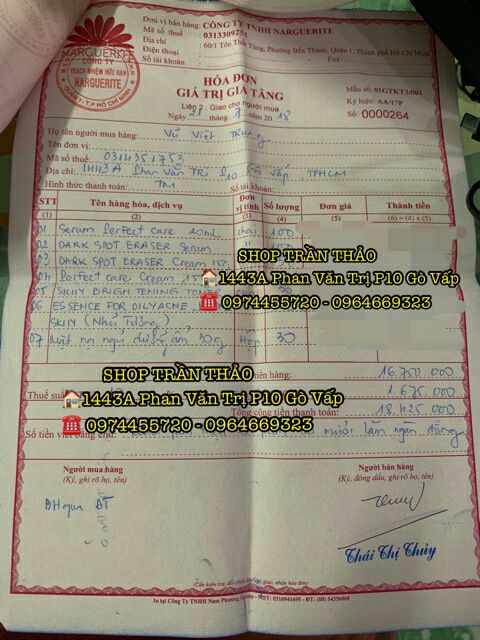 Đơn vị bán hàng: CÔNG TY TNHH NARGUERITE
Mã số thuế : 0313309251
Địa chỉ : 60/1 Tôn Thất Tùng, Phường Bến Thành, Quận 1, Thành phố Hồ Chí Minh
Điện thoại : Fax:
Số tài khoản :
NARGUERITE
CÔNG TY
TRÁCH NHIỆM HỮU HẠN
NARGUERITE
QUẬN 1 - T.P HỒ CHÍ MINH
HÓA ĐƠN
GIÁ TRỊ GIA TĂNG
Liên 2: Giao cho người mua
Ngày 21 7 2018
Mẫu số: 01GTKT3/001
Ký hiệu: AA/17P
Số: 0000264
Họ tên người mua hàng: Vũ Việt Trung
Tên đơn vị:
Mã số thuế: 0314351753
Địa chỉ: 1443A Phan Văn Trị P10 Gò Vấp, TPHCM
Hình thức thanh toán: TM Số tài khoản:
STT Tên hàng hóa, dịch vụ Đơn vị tính Số lượng Đơn giá Thành tiền
(1) (2) (3) (4) (5) (6) = (4) x (5)
01 Serum Perfect care 20ml chai 100
02 DARK SPOT ERASER Serum " 100
03 DARK SPOT ERASER Cream
SHOP TRẦN THẢO
04 Perfect care Cream
1443A Phan Văn Trị P10 Gò Vấp
05
0974455720 - 0964669323
06 ESSENCE FOR OILYACNE
SKIN
07 Mặt nạ ngủ dưỡng ẩm 30g Hộp 30
SHOP TRẦN THẢO
tiền hàng: 16.750.000
1443A Phan Văn Trị P10 Gò Vấp
Thuế suất 1.675.000
Tổng cộng tiền thanh toán: 18.425.000
0974455720 - 0964669323
Số tiền viết bằng chữ: mươi lăm ngàn đồng
Người mua hàng
(Ký, ghi rõ họ, tên)
Người bán hàng
(Ký, đóng dấu, ghi rõ họ, tên)
BH qua ĐT
Thái Thị Thủy
(Cần kiểm tra, đối chiếu khi lập, giao, nhận hóa đơn)
In tại Công Ty TNHH Nam Phương Group - MST: 0310941695 - ĐT: (08) 54356068